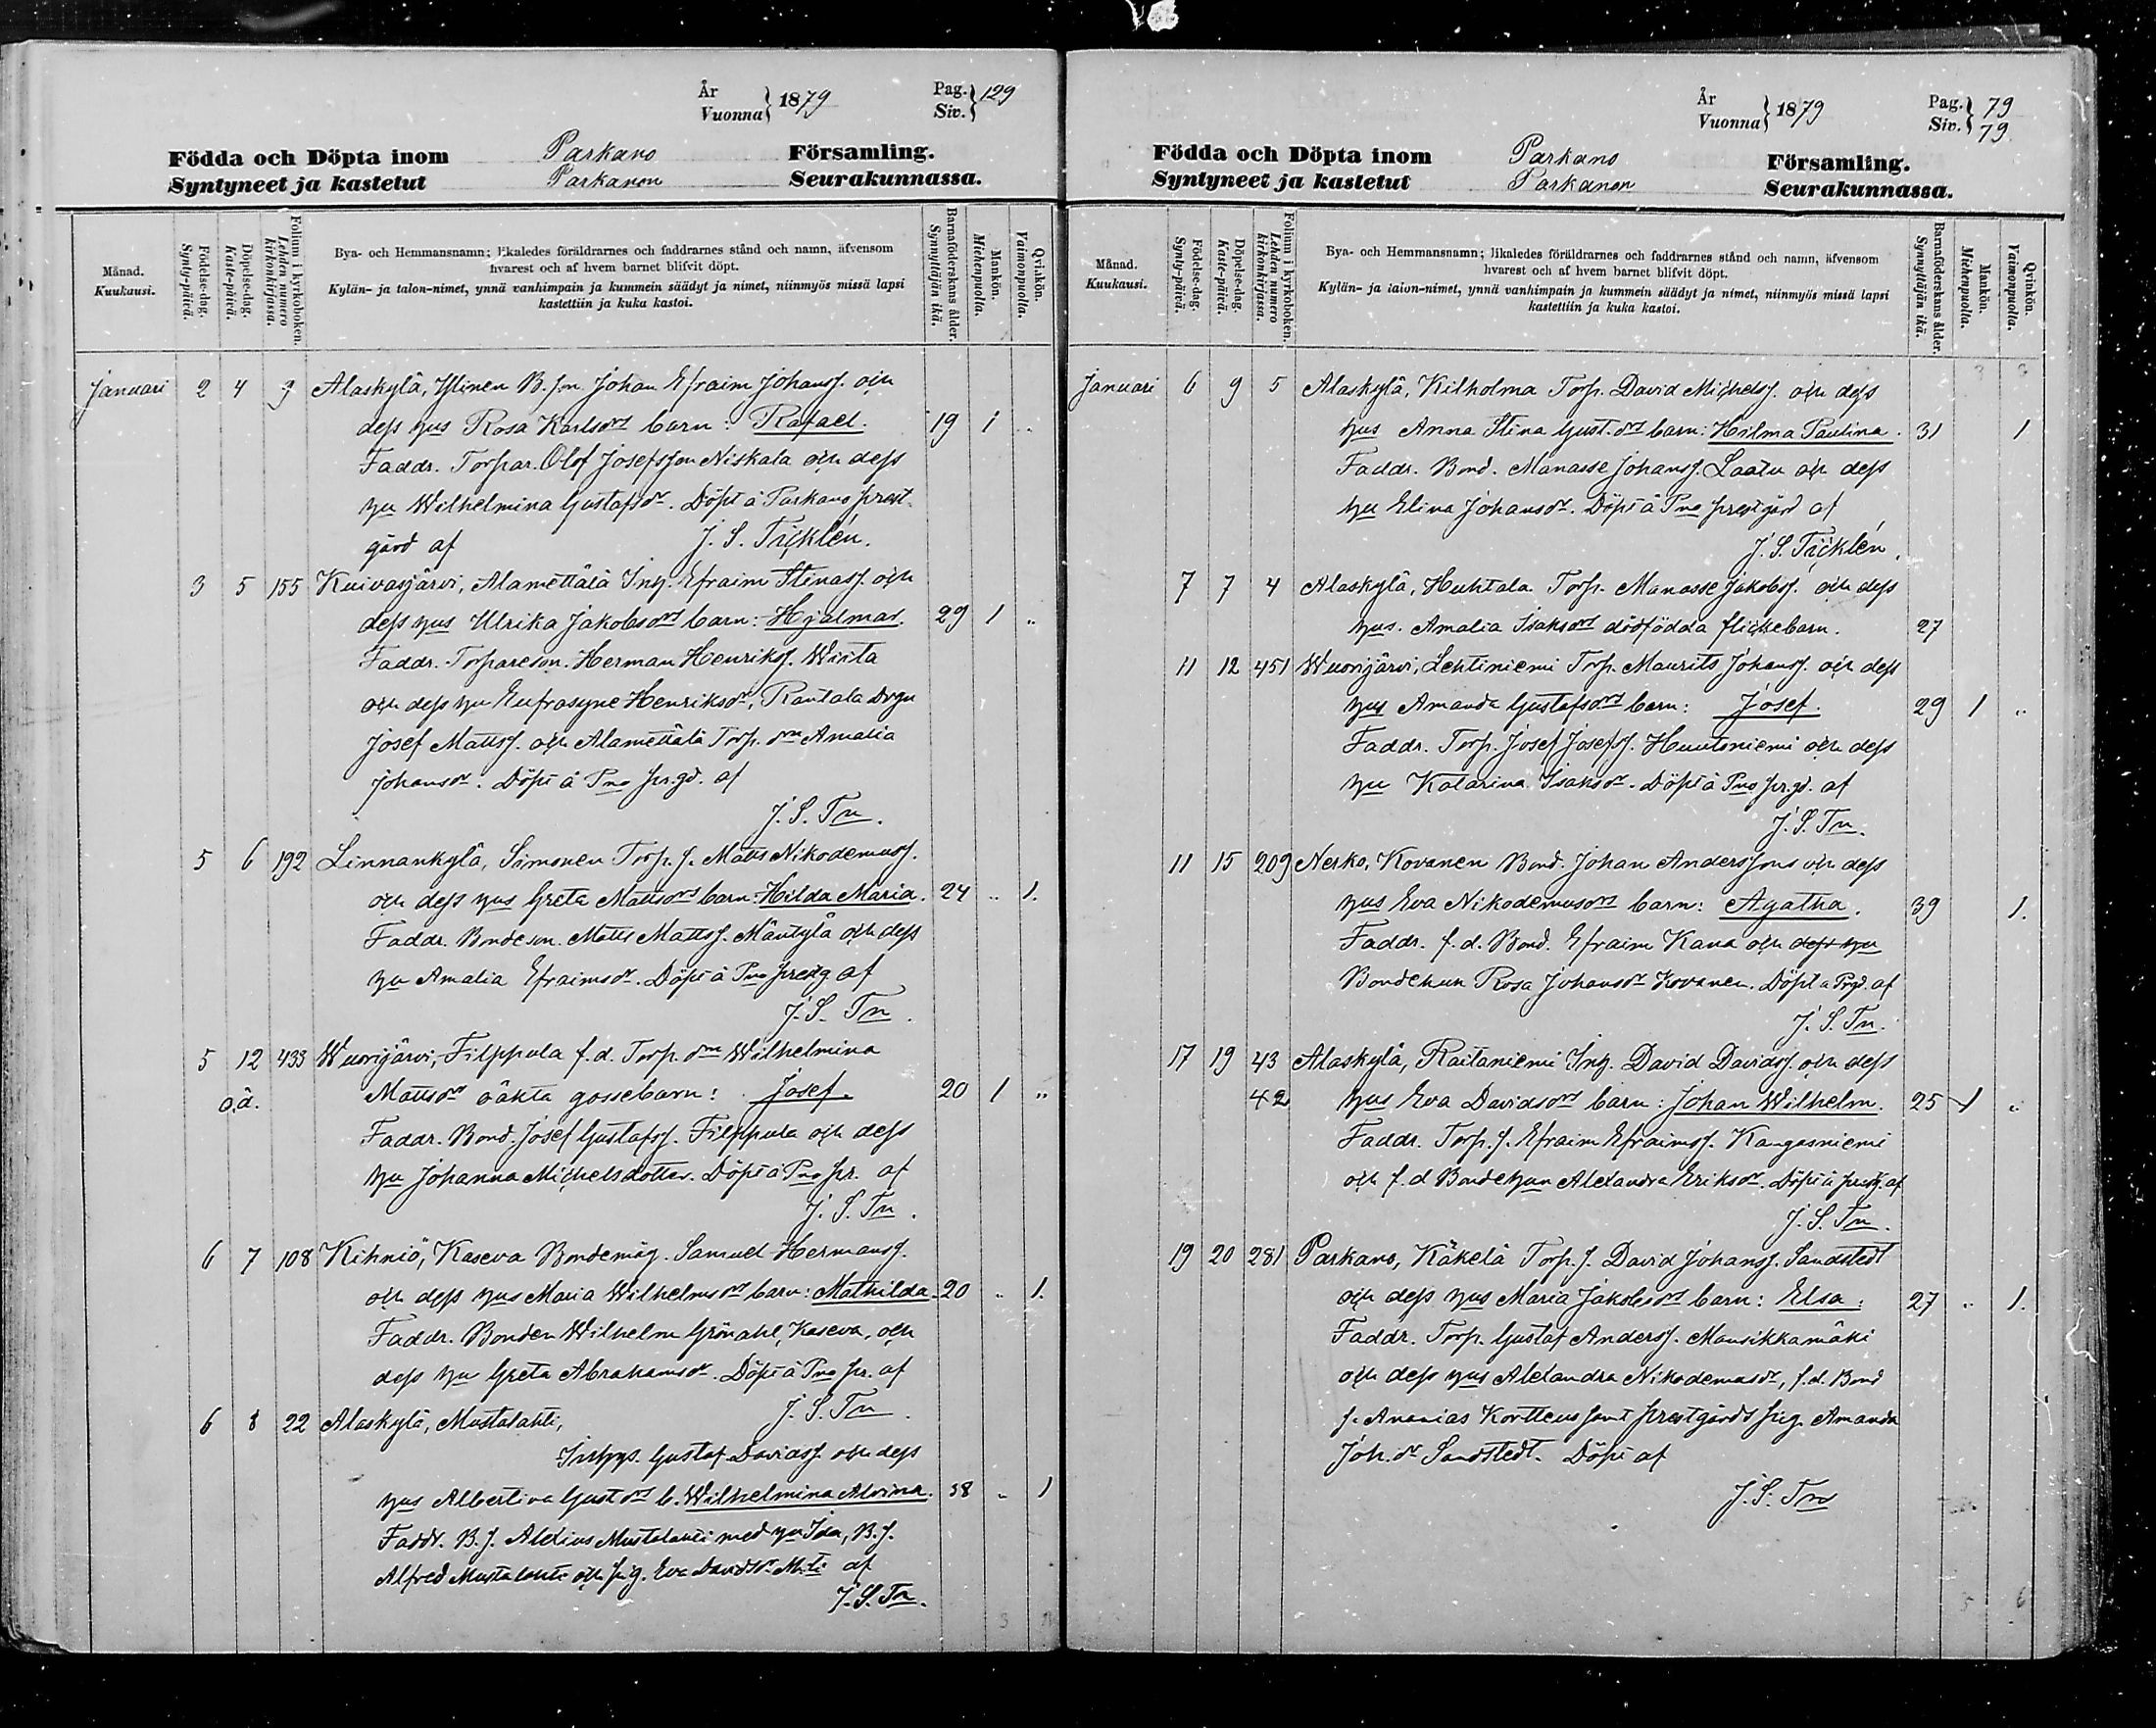 År
Vuonna } 1879
Pag.
Siv. } 129
Födda och Döpta inom Parkano Församling.
Syntyneet ja kastetut Parkanon Seurakunnassa.
Månad.
Kuukausi.
Födelse-dag.
Synty-päivä.
Döpelse-dag.
Kaste-päivä.
Folium i kyrkoboken.
Lehden numero kirkonkirjassa.
Bya- och Hemmansnamn; likaledes föräldrarnes och faddrarnes stånd och namn, äfvensom
hvarest och af hvem barnet blifvit döpt.
Kylän- ja talon-nimet, ynnä vanhimpain ja kummein säädyt ja nimet, niinmyös missä lapsi
kastettiin ja kuka kastoi.
Barnaföderskans ålder.
Synnyttäjän ikä.
Mankön.
Miehenpuolta.
Qvinkön.
Vaimonpuolta.
Januari 2 4 9 Alaskylä, Ylinen B. son Johan Efraim Johanss. och
dess hus Rosa Karlsdrs barn: Rafael. 19 1 ..
Faddr. Torpar. Olof Josefsson Niskala och dess
hu Wilhelmina Gustafsdr. Döpt å Parkano prest
gård af J. S. Ticklén.
3 5 155 Kuivasjärvi, Alamettälä Inh. Efraim Stinass. och
dess hus Ulrika Jakobsdrs barn: Hjalmar. 29 1 ..
Faddr. Torpareson. Herman Henrikss. Wiita
och dess hu Eufrosyne Henriksdr, Rantala Drgn
Josef Mattss. och Alamettälä Torp. drn Amalia
Johansdr. Döpt å Pno pr.gd. af
J. S. Tn.
5 6 192 Linnankylä, Simonen Torp. s. Matts Nikodemuss.
och dess hus Greta Mattsdrs barn: Hilda Maria. 24 .. 1.
Faddr. Bondeson. Matts Mattss. Mäntylä och dess
hu Amalia Efraimsdr. Döpt å Pno prestg af
J. S. Tn.
5 12 433 Wuorijärvi, Filppula f.d. Torp. drn Wilhelmina
o.ä. Mattsdr oäkta gossebarn: Josef. 20 1 ..
Faddr. Bond. Josef Gustafss. Filppula och dess
hu Johanna Michelsdotter. Döpt å Pno pr. af
J. S. Tn.
6 7 108 Kihniö, Kaseva Bondemåg. Samuel Hermanss.
och dess hus Maria Wilhelmsdrs barn: Mathilda. 20 .. 1.
Faddr. Bonden Wilhelm Grönahl, Kaseva, och
dess hu Greta Abrahamsdr. Döpt å Pno pr. af
J. S. Tn.
6 8 22 Alaskylä, Mustalahti,
Inhys. Gustaf Davidss. och dess
hus Albertina Gustdrs b. Wilhelmina Alvina. 38 .. 1
Faddr. B. s. Alexius Mustalahti med hu Ida, B. s.
Alfred Mustalahti och pig. Eva Davidsdr M:ti af
J. S. Tn.
År
Vuonna } 1879
Pag.
Siv. } 79
79
Födda och Döpta inom Parkano Församling.
Syntyneet ja kastetut Parkanon Seurakunnassa.
Månad.
Kuukausi.
Födelse-dag.
Synty-päivä.
Döpelse-dag.
Kaste-päivä.
Folium i kyrkoboken.
Lehden numero kirkonkirjassa.
Bya- och Hemmansnamn; likaledes föräldrarnes och faddrarnes stånd och namn, äfvensom
hvarest och af hvem barnet blifvit döpt.
Kylän- ja talon-nimet, ynnä vanhimpain ja kummein säädyt ja nimet, niinmyös missä lapsi
kastettiin ja kuka kastoi.
Barnaföderskans ålder.
Synnyttäjän ikä.
Mankön.
Miehenpuolta.
Qvinkön.
Vaimonpuolta.
Januari 6 9 5 Alaskylä, Kilholma Torp. David Michelss. och dess
hus Anna Stina Gust.drs barn: Hilma Paulina. 31 1
Faddr. Bond. Manasse Johanss. Laatu och dess
hu Elina Johansdr. Döpt å Pno prestgård af
J. S. Ticklén.
7 7 4 Alaskylä, Huhtala Torp. Manasse Jakobss. och dess
hus. Amalia Isaksdrs dödfödda flickebarn. 27
11 12 451 Wuorijärvi, Lehtiniemi Torp. Maurits Johanss. och dess
hus Amanda Gustafsdrs barn: Josef. 29 1 ..
Faddr. Torp. Josef Josefss. Huutoniemi och dess
hu Katarina Isaksdr. Döpt å Pno pr.gd. af
J. S. Tn.
11 15 209 Nerko, Kovanen Bond. Johan Anderssons och dess
hus Eva Nikodemusdrs barn: Agatha. 39 1.
Faddr. f. d. Bond. Efraim Kana och dess hu
Bondehun Rosa Johansdr Kovanen. Döpt å Prgd. af
J. S. Tn.
17 19 43 Alaskylä, Raitaniemi Inh. David Davidss. och dess
42 hus Eva Davidsdrs barn: Johan Wilhelm. 25 1 ..
Faddr. Torp. s. Efraim Efraimss. Kangasniemi
och f. d Bondehun Alexandra Eriksdr. Döpt å prestg. af
J. S. Tn.
19 20 281 Parkano, Käkelä Torp. s. David Johanss. Sandstedt
och dess hus Maria Jakobsdrs barn: Elsa. 27 .. 1.
Faddr. Torp. Gustaf Anderss. Mansikkamäki
och dess hus Alexandra Nikodemusdr, f.d. Bond
s. Ananias Kortteus samt prestgårds pig. Amanda
Joh. dr Sandstedt. Döpt af
J. S. Tn